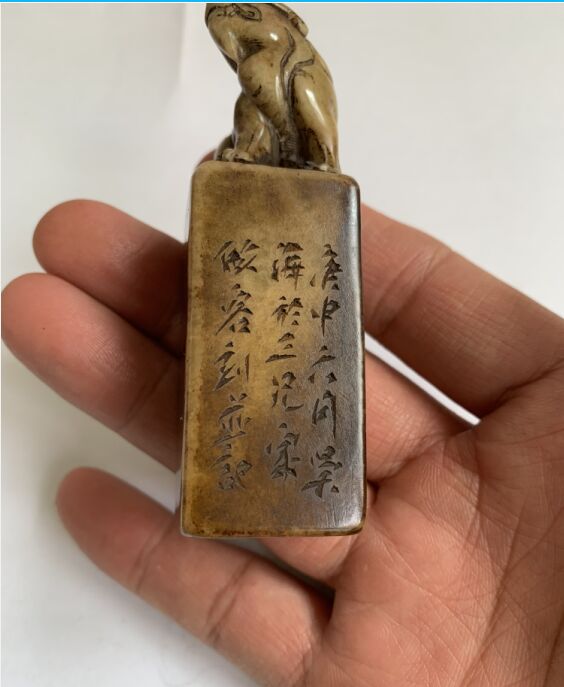 庚申六月吴
海於三兄家
做客刻並記